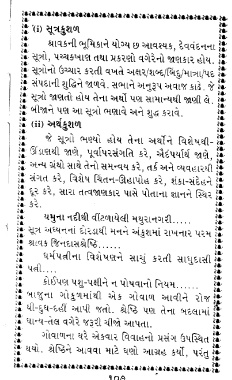 (i) સૂત્રકુશળ
શ્રાવકની ભૂમિકાને યોગ્ય છ આવશ્યક, દેવવંદનના
સૂત્રો, પચ્ચક્ખાણ તથા પ્રકરણો વગેરેનો જાણકાર હોય.
સૂત્રોનો ઉચ્ચાર કરતી વખતે અક્ષર/શબ્દ/બિંદુ/માત્રા/પદ
સંપદાની શુદ્ધિને જાળવે. સભાને અનુરૂપ અવાજ કાઢે. જે
સૂત્રો જાણતો હોય તેના અર્થો પણ સામાન્યથી જાણી લે.
બીજાને પણ આ સૂત્રો ભણાવે અને શુદ્ધ કરાવે.
(ii) અર્થકુશળ
જે સૂત્રો ભણ્યો હોય તેના અર્થોને વિશેષથી-
ઊંડાણથી જાણે, પૂર્વાપરસંગતિ કરે, ઐદંપર્યાર્થ જાણે,
અન્ય ગ્રંથો સાથે તેનો સમન્વય કરે, તર્ક અને વ્યવહારથી
સંગત કરે, વિશેષ ચિંતન-ઊહાપોહ કરે, શંકા-સંદેહને
દૂર કરે, સારા તત્ત્વજાણકાર પાસે પોતાના જ્ઞાનને સ્થિર
કરે.
યમુના નદીથી વીંટળાયેલી મથુરાનગરી.....
સૂત્ર અધ્યનનાં દોરડાથી મનને અંકુશમાં રાખનાર પરમ
શ્રાવક જિનદાસશ્રેષ્ઠિ......
ધર્મપત્નીના વિશેષણને સાચું કરતી સાધુદાસી
પત્ની....
કોઈપણ પશુ-પક્ષીને ન પોષવાનો નિયમ.....
બાજુના ગોકુળમાંથી એક ગોવાળ આવીને રોજ
ઘી-દુધ-દહીં આપી જતો. શ્રેષ્ઠિ પણ તેના બદલામાં
ધાન્ય-તેલ વગેરે જરૂરી ચીજો આપતા.
ગોવાળના ઘરે એકવાર વિવાહનો પ્રસંગ ઉપસ્થિત
થયો. શ્રેષ્ઠિને આવવા માટે ઘણો આગ્રહ કર્યો, પરંતુ